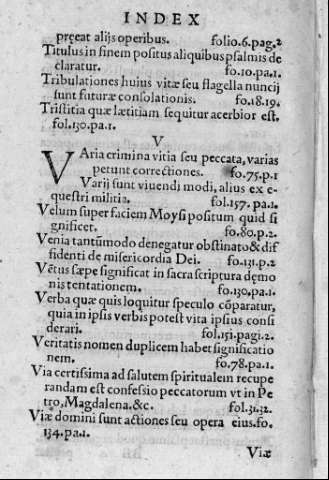 INDEX
pręeat alijs operibus. folio.6.pag.2
Titulus in finem positus aliquibus psalmis de
claratur. fo.10.pa.1.
Tribulationes huius vitæ seu flagella nuncij
sunt futuræ consolationis. fo.18.19.
Tristitia quæ lætitiam sequitur acerbior est.
fol.130.pa.1.
V
VAria crimina vitia seu peccata, varias
petunt correctiones. fo.75.p.1
Varij sunt viuendi modi, alius ex e-
questri militia. fol.157. pa.1.
Velum super faciem Moysi positum quid si
gnificet. fo.80.p.2.
Venia tantũmodo denegatur obstinato & dif
fidenti de misericordia Dei. fo.131.p.2
Vẽtus sæpe significat in sacra scriptura dęmo
nis tentationem. fo.130.pa.1.
Verba quæ quis loquitur speculo cõparatur,
quia in ipsis verbis potest vita ipsius consi
derari. fol.151.pagi.2.
Veritatis nomen duplicem habet significatio
nem. fo.78.pa.1.
Via certissima ad salutem spiritualem recupe
randam est confessio peccatorum vt in Pe
tro, Magdalena.&c. fol.31.32.
Viæ domini sunt actiones seu opera eius.fo.
134.pa.1.
Viæ